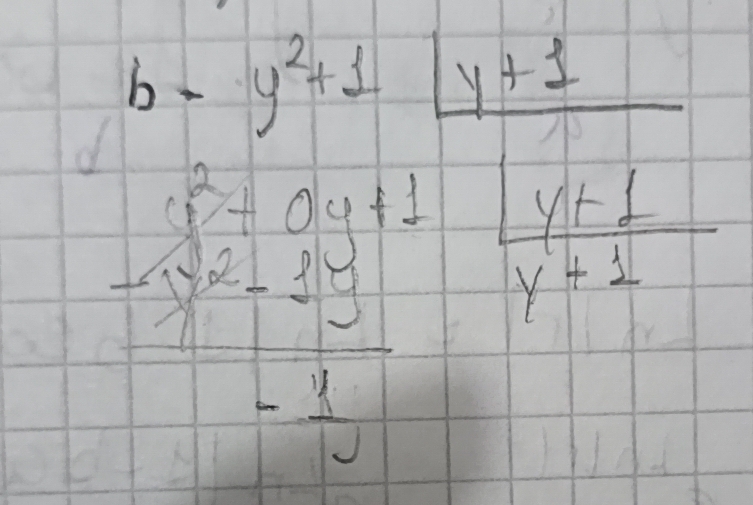 b - y²+1 | y+1
y² + 0y+1 | y+1
-y² - 1y y+1
- 1y